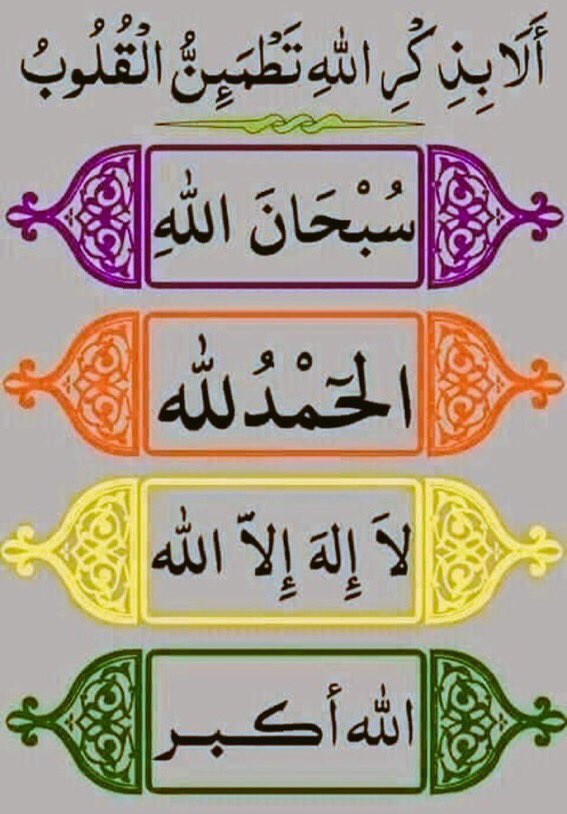 أَلَا بِذِكْرِ اللهِ تَطْمَئِنُّ الْقُلُوبُ
سُبْحَانَ اللهِ
الْحَمْدُ لله
لاَ إِلهَ إِلاّ الله
الله أكبر